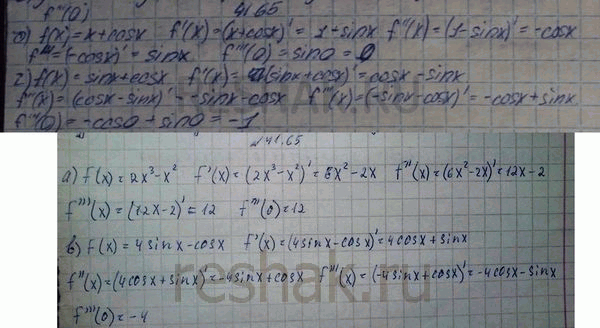 f'''(0) 41.65
б) f(x) = x + cosx f'(x) = (x + cosx)' = 1 + sinx f''(x) = (1 - sinx)' = -cosx
f''' = (-cosx)' = sinx f'''(0) = sin0 = 0
г) f(x) = sinx + cosx f'(x) = (sinx + cosx)' = cosx - sinx
f''(x) = (cosx - sinx)' = -sinx - cosx f'''(x) = (-sinx - cosx)' = -cosx + sinx
f'''(0) = -cos0 + sin0 = -1
№41.65
а) f(x) = 2x³ - x² f'(x) = (2x³ - x²)' = 6x² - 2x f''(x) = (6x² - 2x)' = 12x - 2
f'''(x) = (12x - 2)' = 12 f'''(0) = 12
в) f(x) = 4sinx - cosx f'(x) = (4sinx - cosx)' = 4cosx + sinx
f''(x) = (4cosx + sinx)' = -4sinx + cosx f'''(x) = (-4sinx + cosx)' = -4cosx - sinx
reshak.ru
f'''(0) = -4